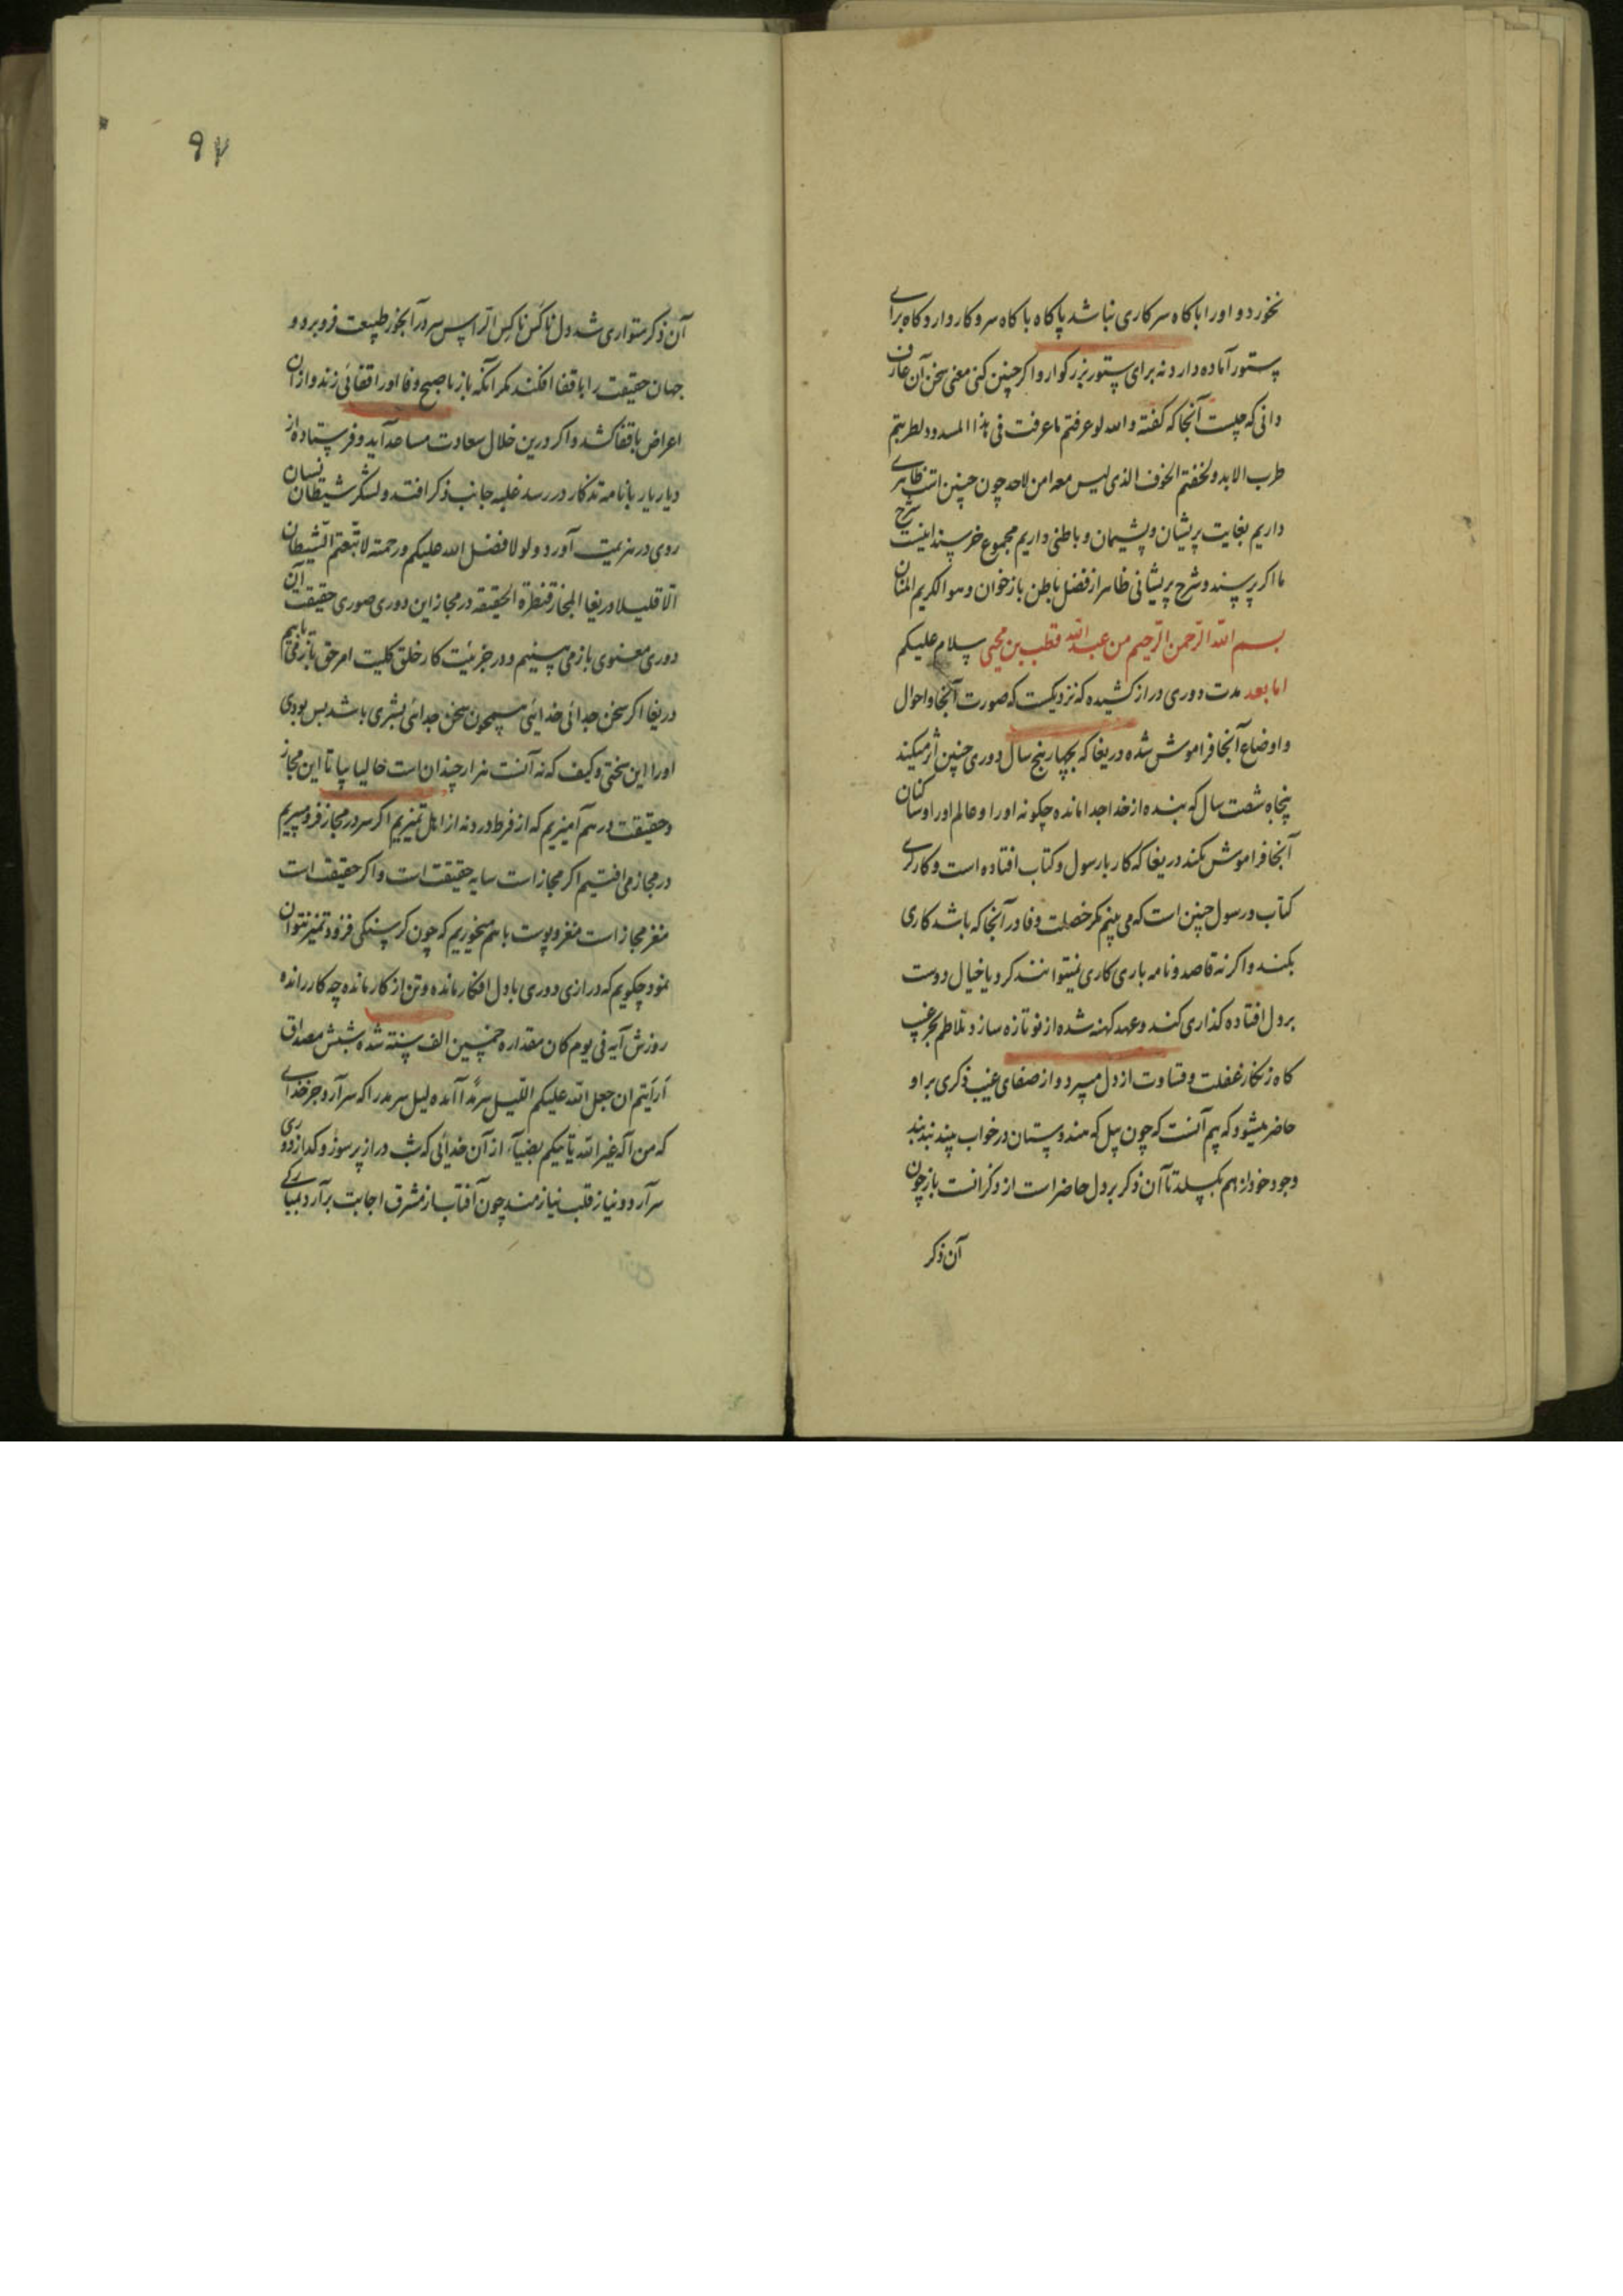 نخورد و او را با کاه سر کاری نباشد پا کاه با کاه سر و کار دارد و کاه برای
ستور آماده دارد نه برای ستور بزرگوار و اگر چنین کنی معنی سخن آن عارف
دانی که چیست آنجا که گفته والله لو عرفتم ما عرفت فی هذا المسدود لطربتم
طرب الابد و لخفتم الخوف الذی لیس معه امن لاحد چون چنین است ظاهری
داریم بغایت پریشان و پشیمان و باطنی داریم مجموع خرسند اینست شرح
ما اگر پرسند و شرح پریشانی ظاهر از فضل باطن باز خوان و هو الکریم المنان
بسم الله الرحمن الرحیم من عبد الله قطب بن محیی سلام علیکم
اما بعد مدت دوری دراز کشیده که نزدیکست که صورت آنجا و احوال
و اوضاع آنجا فراموش شده دریغا که بچهار پنج سال دوری چنین اثر میکند
پنجاه شصت سال که بنده از خدا جدا مانده چگونه او را و عالم او را و ساکنان
آنجا فراموش نکند دریغا که کار با رسول و کتاب افتاده است و کارگری
کتاب و رسول چنین است که می بینم مگر خصلت وفا در آنجا که باشد کاری
بکند و اگر نه قاصد و نامه باری کاری نیتوانند کرد یا خیال دوست
بر دل افتاده گذاری کند و عهد کهنه شده از نو تازه سازد و تلاطم بحر غیب
گاه زنگار غفلت و قساوت از دل میبرد و از صفای غیب ذکری بر او
حاضر میشود که بیم آنست که چون پیل که هندوستان در خواب بیند بند بند
وجود خود از هم بگسلد تا آن ذکر بر دل حاضر است از ذکرانست باز چون
آن ذکر
۹۷
آن ذکر متواری شد دل ناکس ناکس تر از پس سر در آبخور طبیعت فرو برد و
جهان حقیقت را با قفا افکند مگر آنکه باز با صبح وفا او را قفائی زند و از آن
اعراض با قفا کشد و اگر درین خلال سعادت مساعد آید و فرستاده از
دیار یار با نامه تذکار در رسد غلبه جانب ذکر افتد و لشکر شیطان نسیان
روی در هزیمت آورد و لولا فضل الله علیکم و رحمته لاتبعتم الشیطان
الا قلیلا دریغا المجاز قنطرة الحقیقة در مجاز این دوری صوری حقیقت آن
دوری معنوی باز می بینیم و در جزئیت کار خلق کلیت امر حق باز می یابیم
دریغا اگر سخن جدائی خدائی همچون سخن جدائی بشری باشد بس بودی
او را این سختی و کیف که نه آنست هزار چندان است حالیا بیا تا این مجاز
و حقیقت در هم آمیزیم که از فرط درد نه از اهل تمیزیم اگر سر در مجاز فرو میبریم
در مجاز می افتیم اگر مجاز است سایه حقیقت است و اگر حقیقت است
مغز مجاز است مغز و پوست با هم میخوریم که چون گرسنگی فزود تمیز نتوان
نمود چگویم که درازی دوری با دل افکار مانده و تن از کار مانده چه کار رانده
روزش آیه فی یوم کان مقداره خمسین الف سنة شده شبش مصداق
أرأیتم ان جعل الله علیکم اللیل سرمدا آمده لیل سرمد را که سر آرد جز خدای
که من اله غیر الله یأتیکم بضیاء از آن خدائی که شب دراز پر سوز و گداز دوری
سر آرد و نیاز قلب نیازمند چون آفتاب از مشرق اجابت بر آرد بمبارکی